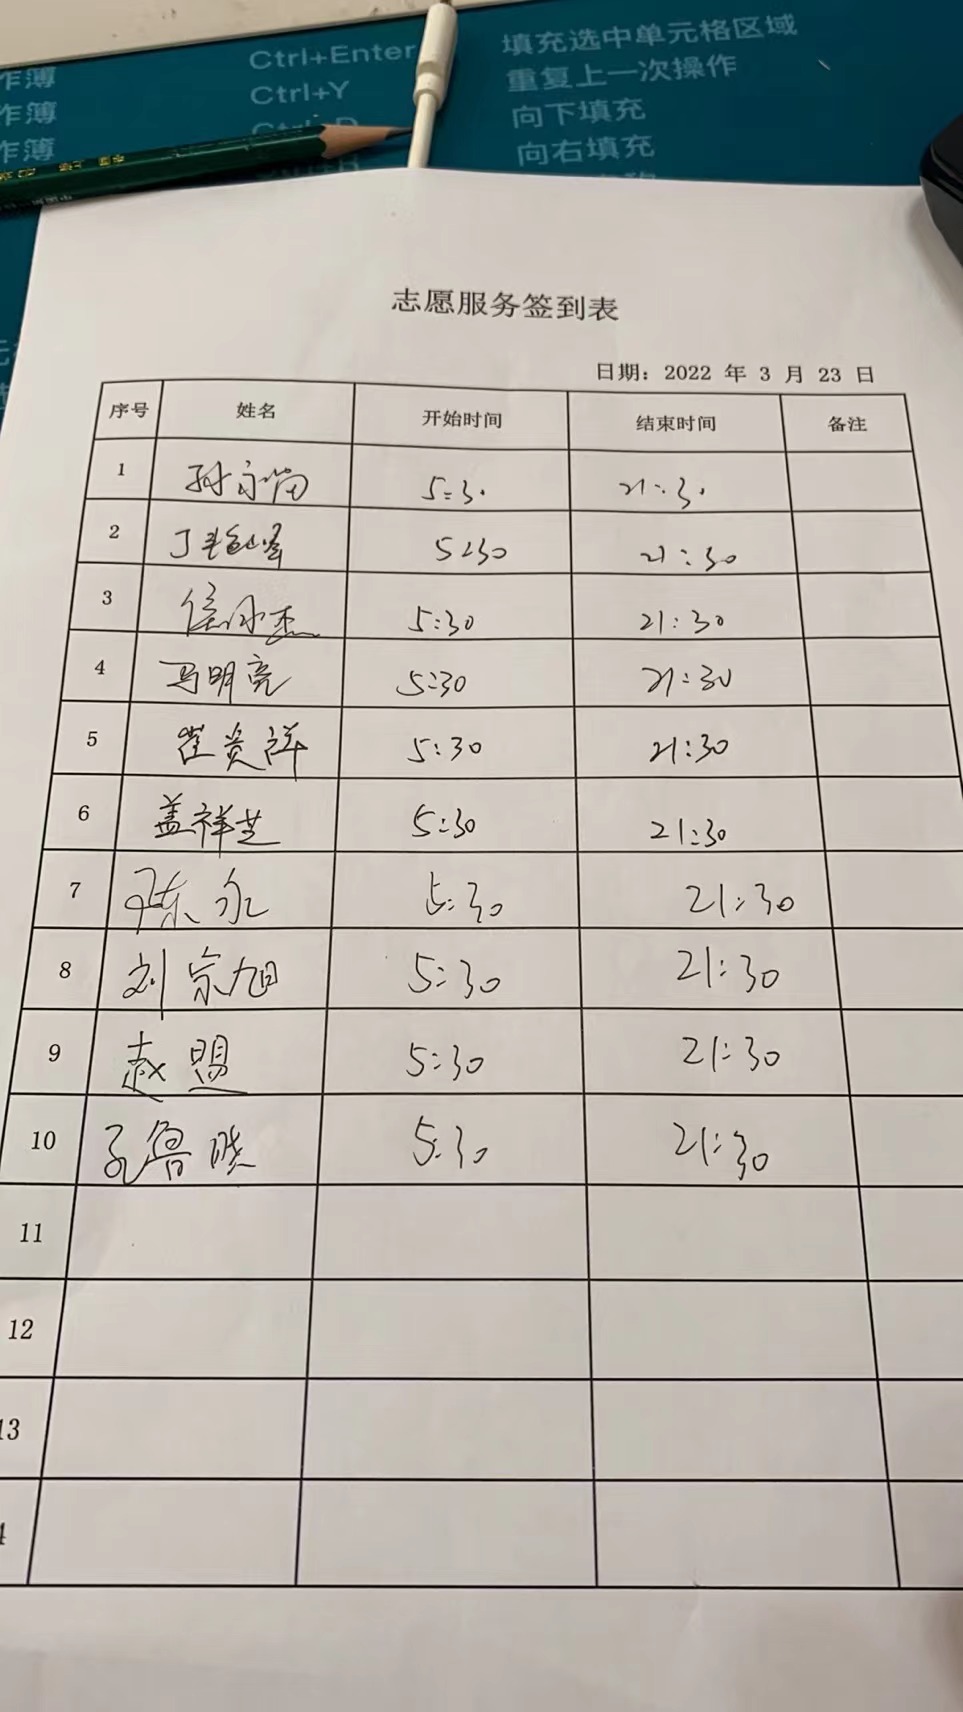 作簿 Ctrl+Enter 填充选中单元格区域
作簿 Ctrl+Y 重复上一次操作
作簿 Ctrl+D 向下填充
向右填充
志愿服务签到表
日期：2022 年 3 月 23 日
序号 姓名 开始时间 结束时间 备注
1 孙 5:30 21:30
2 丁 5:30 21:30
3 5:30 21:30
4 冯明亮 5:30 21:30
5 崔贵祥 5:30 21:30
6 盖祥芝 5:30 21:30
7 陈永 5:30 21:30
8 刘宗旭 5:30 21:30
9 赵盟 5:30 21:30
10 孔鲁晓 5:30 21:30
11
12
13
4